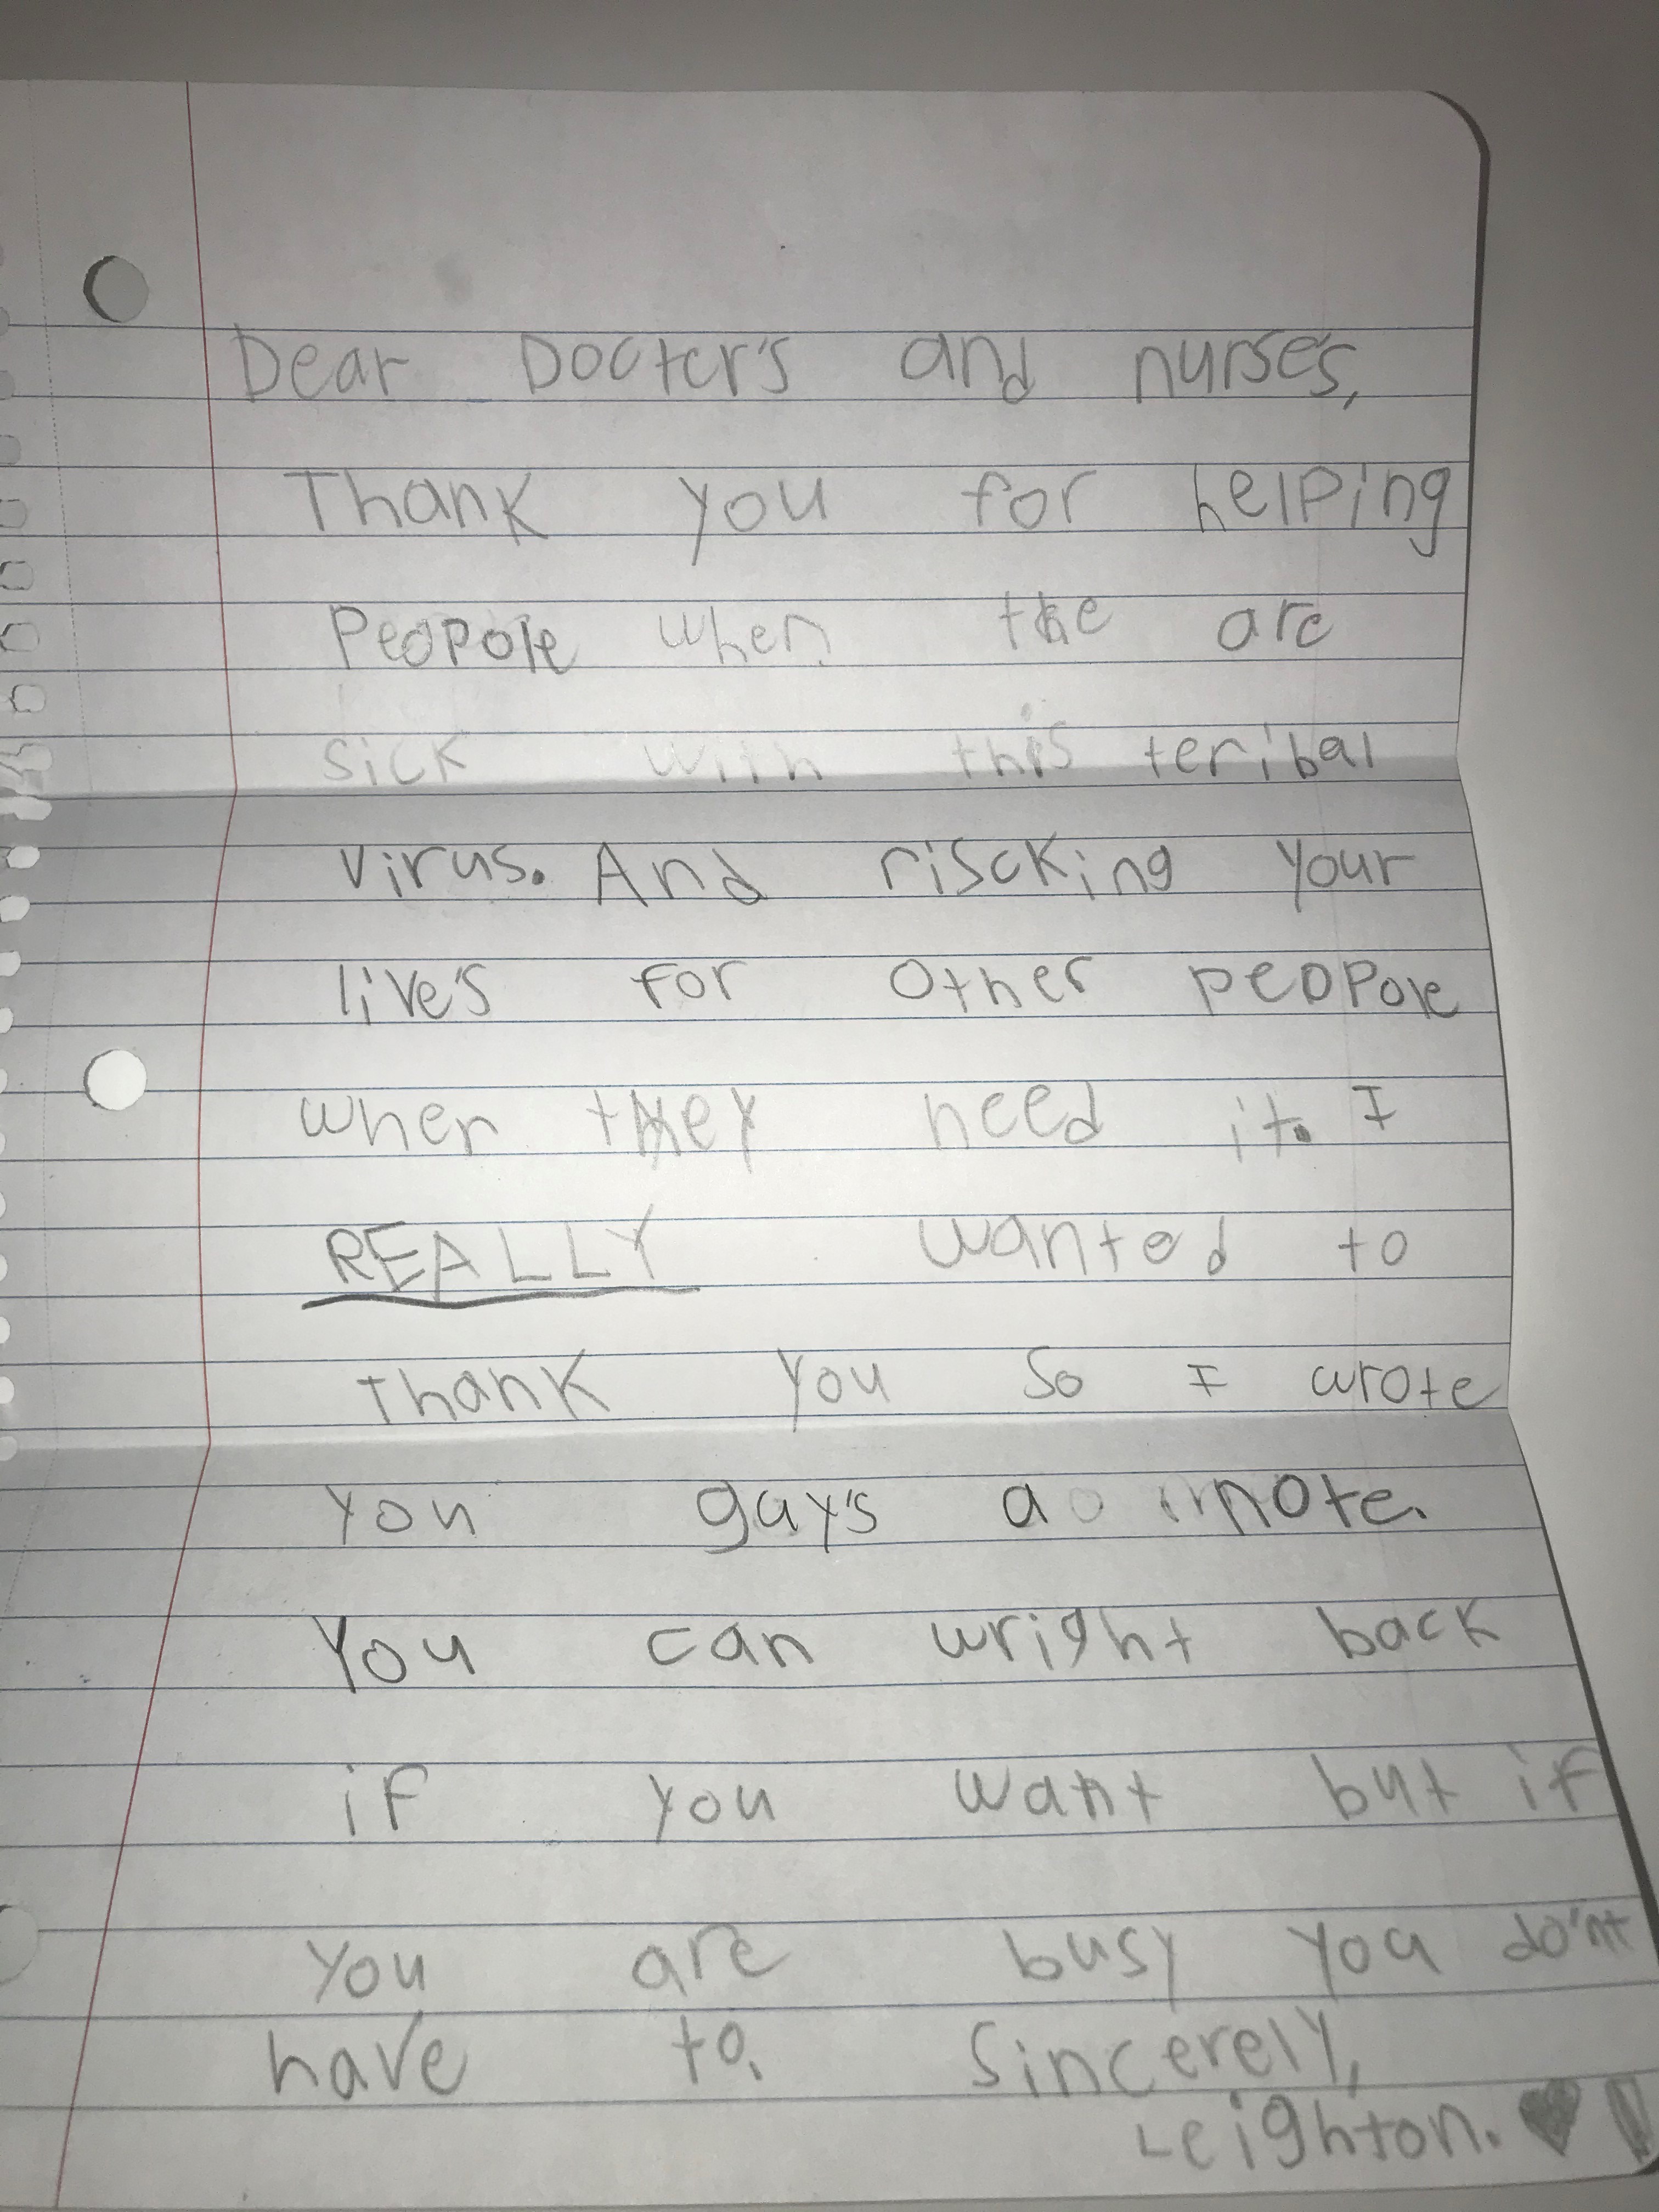 Dear Docter's and nurse's,
Thank you for helping
Peopole when the are
sick with this teribal
virus. And riscking your
live's for other peopole
when they need it. I
REALLY wanted to
thank you so I wrote
you guy's a note.
You can wright back
if you want but if
you are busy you do'nt
have to. Sincerely,
Leighton.